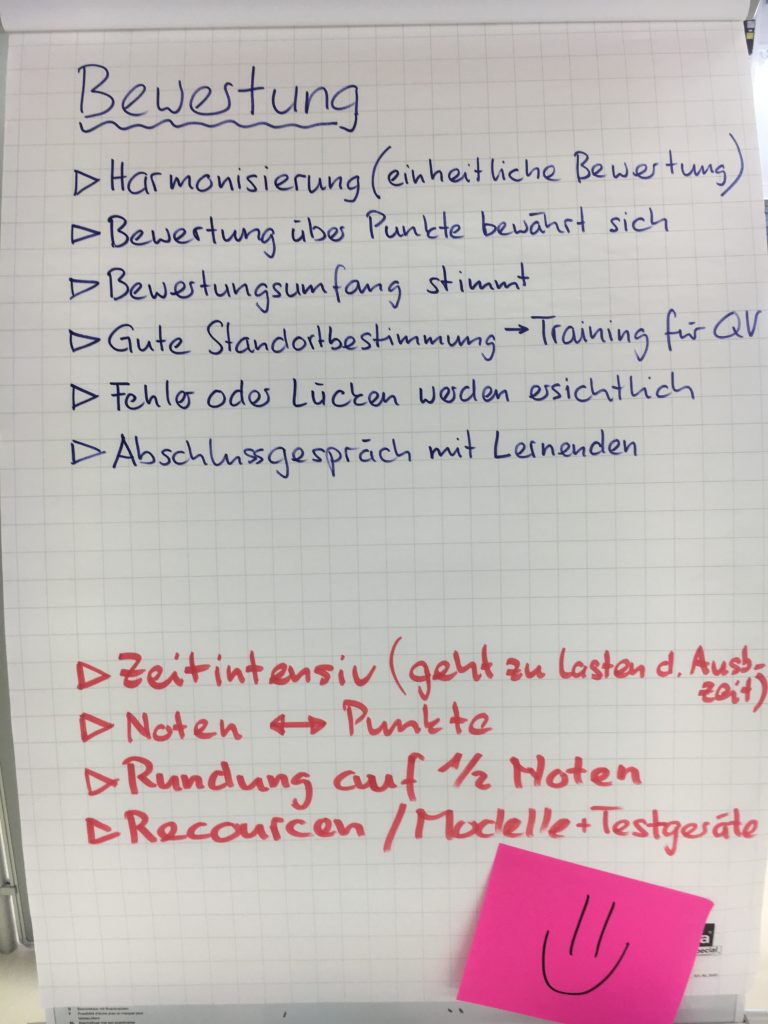 Bewertung
▷ Harmonisierung (einheitliche Bewertung)
▷ Bewertung über Punkte bewährt sich
▷ Bewertungsumfang stimmt
▷ Gute Standortbestimmung → Training für QV
▷ Fehler oder Lücken werden ersichtlich
▷ Abschlussgespräch mit Lernenden
▷ Zeitintensiv (geht zu lasten d. Ausb-
zeit)
▷ Noten ↔ Punkte
▷ Rundung auf 1/2 Noten
▷ Recourcen / Modelle + Testgeräte